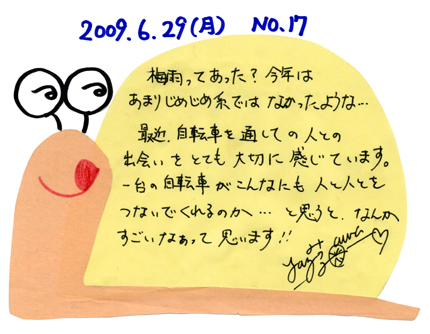 2009.6.29(月) NO.17
梅雨ってあった？今年は
あまりじめじめ系では なかったような…
最近、自転車を通しての人との
出会いをとても大切に感じています。
一台の自転車がこんなにも人と人とを
つないでくれるのか…と思うと、なんか
すごいなぁって思います!!